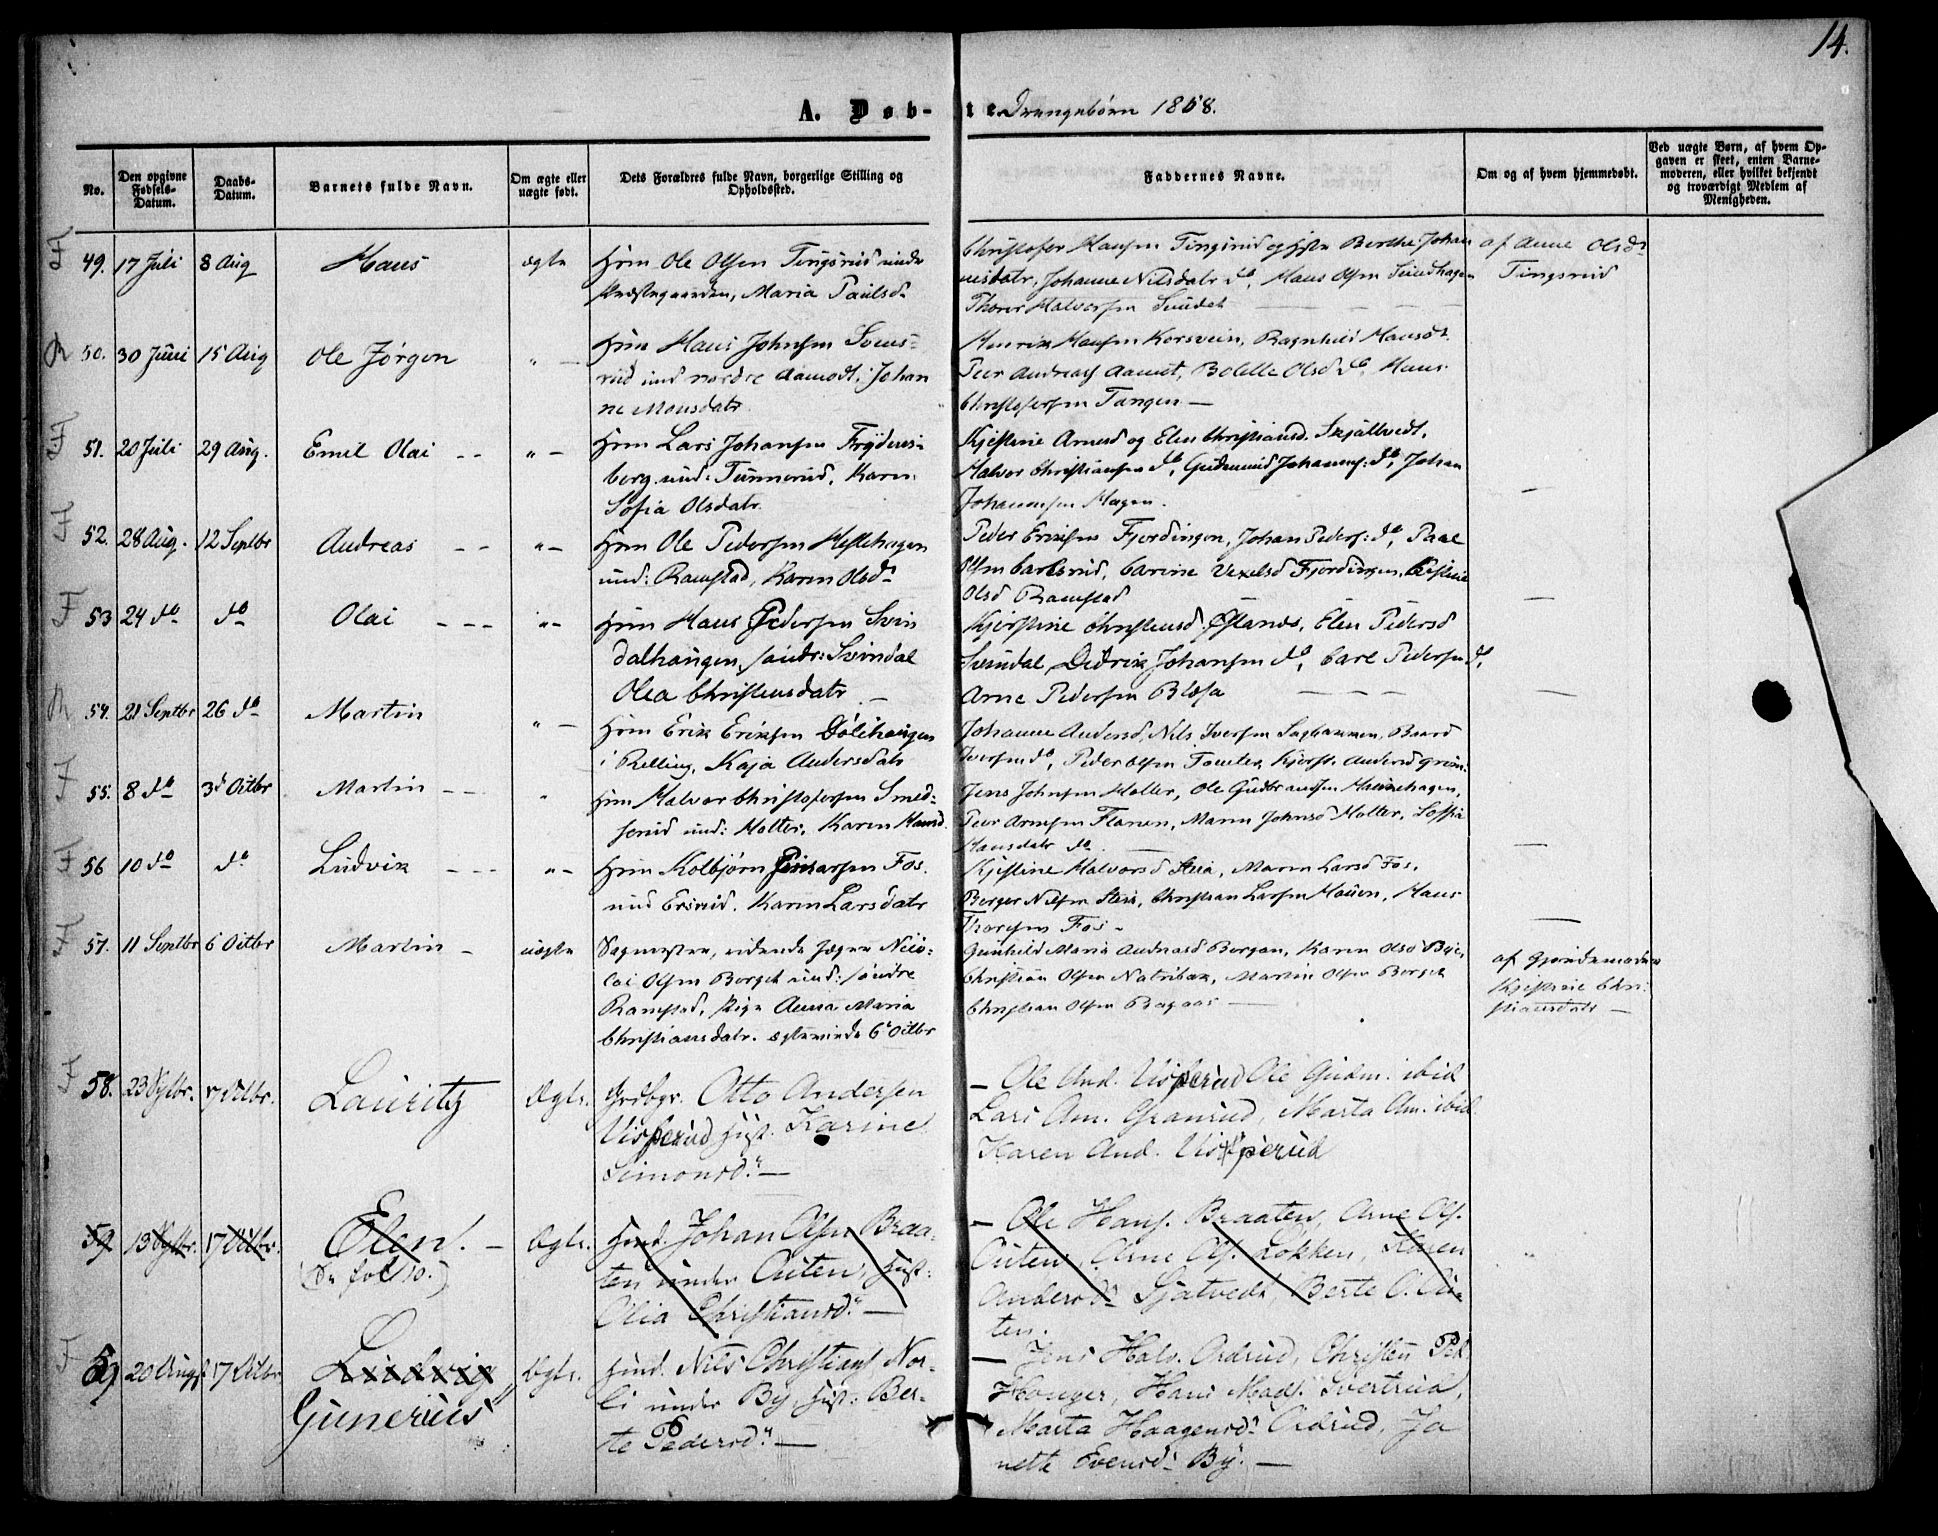 14.
A. Døb-te Drengebørn 1858.
No.
Den opgivne Fødsels-Datum.
Daabs-Datum.
Barnets fulde Navn.
Om ægte eller uægte født.
Dets Forældres fulde Navn, borgerlige Stilling og Opholdssted.
Faddernes Navne.
Om og af hvem hjemmedøbt.
Ved uægte Børn, af hvem Opgaven er skeet, enten Barnemoderen, eller hvilket bekjendt og troværdigt Medlem af Menigheden.
49. 17 Juli 8 Aug Hans ægte
Hmm Ole Olsen Tingsrud under
Præstegaarden, Maria Paulsd.
Christofer Hansen Tingsrud og Berthe Johan
nisdatr, Johanne Nilsdatr do, Hans Olsen
Thorer Halvorsen Sundet
af Anne Olsdr
Tingsrud
50. 30 Juni 15 Aug Ole Jørgen " —
Hmm Hans Johnsen
rud und nordre Aamodt, Johan
ne Monsdatr
Henrik Hansen Korsveien, Ragnhild Hansdr
Peer Andreas Aamot, Bolette Olsd do, Hans
Christofersen Tangen —
51. 20 Juli 29 Aug. Emil Olai - - " —
Hmm Lars Johansen
berg und: Tunnerud, Karen
Sofia Olsdatr
Kjestine Arnesd og Elen Christiansd. Skjattvedt,
Halvor Christiansen do, Gudmund Johannes: do, Johan
Johannesen Hagen. —
52. 28 Aug. 12 Septbr Andreas - - " —
Hmm Ole Pedersen Heslehagen
und: Ramstad, Karen Olsdr
Peder Eriksen Fjerdingen, Johan Peders: do, Paal
Olsen Carlsrud, Carine Fjerdingen,
Olsd Ramstad —
53 24 do do Olai - - - " —
Hmm Hans Pedersen Svin
dalhaugen, søndr: Svindal
Olea Christensdatr —
Kjerstine Christensd. Øglands, Elen Pedersd
Svindal, Didrik Johansen do, Carl Pedersen do,
Arne Pedersen Blæsa —
54. 21 Septbr 26 do Martin " —
Hmm Erik Eriksen Dølihaugen
i Relling, Kaja Andersdatr
Johanne Andersd, Nils Iversen Sagbakken, Baard
Iversen do, Peder Olsen Tomter, Kjerst. Andersd
55. 8 do 3d Octbr Martin - - "
Hmm Halvor Christofersen Smed-
serud und: Holter, Karen Hansd.
Jens Johnsen Holter, Ole Gudbrandsen
Peer Arnesen Flanen, Maren Johnsd Holter, Sofia
Hansdatr do —
56 10 do do Ludvik - - - " —
Hmm Kolbjørn Fos.
und Ersrud. Karen Larsdatr
Kjestine Halvorsd Stein, Maren Larsd Fos,
Berger Nilsen Stein, Christian Larsen Hauen, Hans
Thoresen Fos - —
57. 11 Septbr 6 Octbr Martin - uægte
Sagmester, Nico-
lai Olsen Berget und: søndre
Ramstad, Pige Anna Maria
Christiansdatr. 6te Octbr
Gunhild Maria Andreasd Borgen, Karen Olsd Bye,
Christian Olsen Natribak, Martin Olsen Berget
Christian Olsen —
af Gjordemoder
Kjestine Chri-
stiansdatr —
58. 23 Sptbr. 17 Octbr. Lauritz Ægte.
Grdbgr. Otto Andersen
Visperud Hust. Karine
Simonsd. —
— Ole And. Visperud Ole Gudm. ibid
Lars Am. Granrud, Marta Am. ibid
Karen And. Visperud
59 13 Sptbr. 17 Octbr. Elen. — Ægte.
(Se fol 10.)
Husd. Johan Olsen Braa-
ten under Auten, Hust:
Olia Christiansd. —
— Ole Hans. Braaten, Arne Ols.
Auten, Arne Ols. Løkken, Karen
Andersd. Sjatvedt, Berte O. Au-
ten.
"
59 20 Aug. 17 Octbr Ludvig Ægte.
Gunerius
Husd. Nils Christians Nor-
li under By, Hust. Ber-
te Pedersd. —
— Jens Halv. Ordrud, Christen Ped
Houger, Hans Mads. Svertrud,
Marta Haagensd. Ordrud, Ja
nette Evensd. By. —